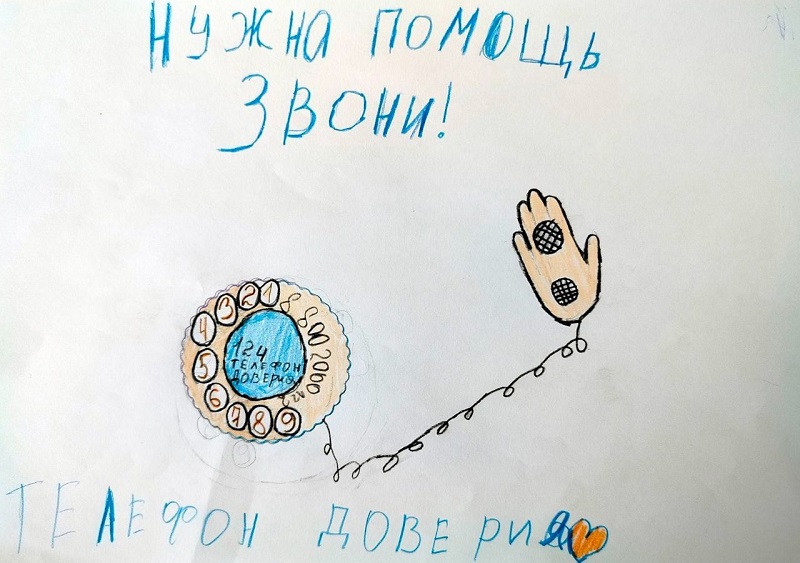 НУЖНА ПОМОЩЬ
ЗВОНИ!
1
2
3
4
5
6
7
8
9
8 800 2000 122
124
ТЕЛЕФОН
ДОВЕРИЯ
ТЕЛЕФОН ДОВЕРИЯ